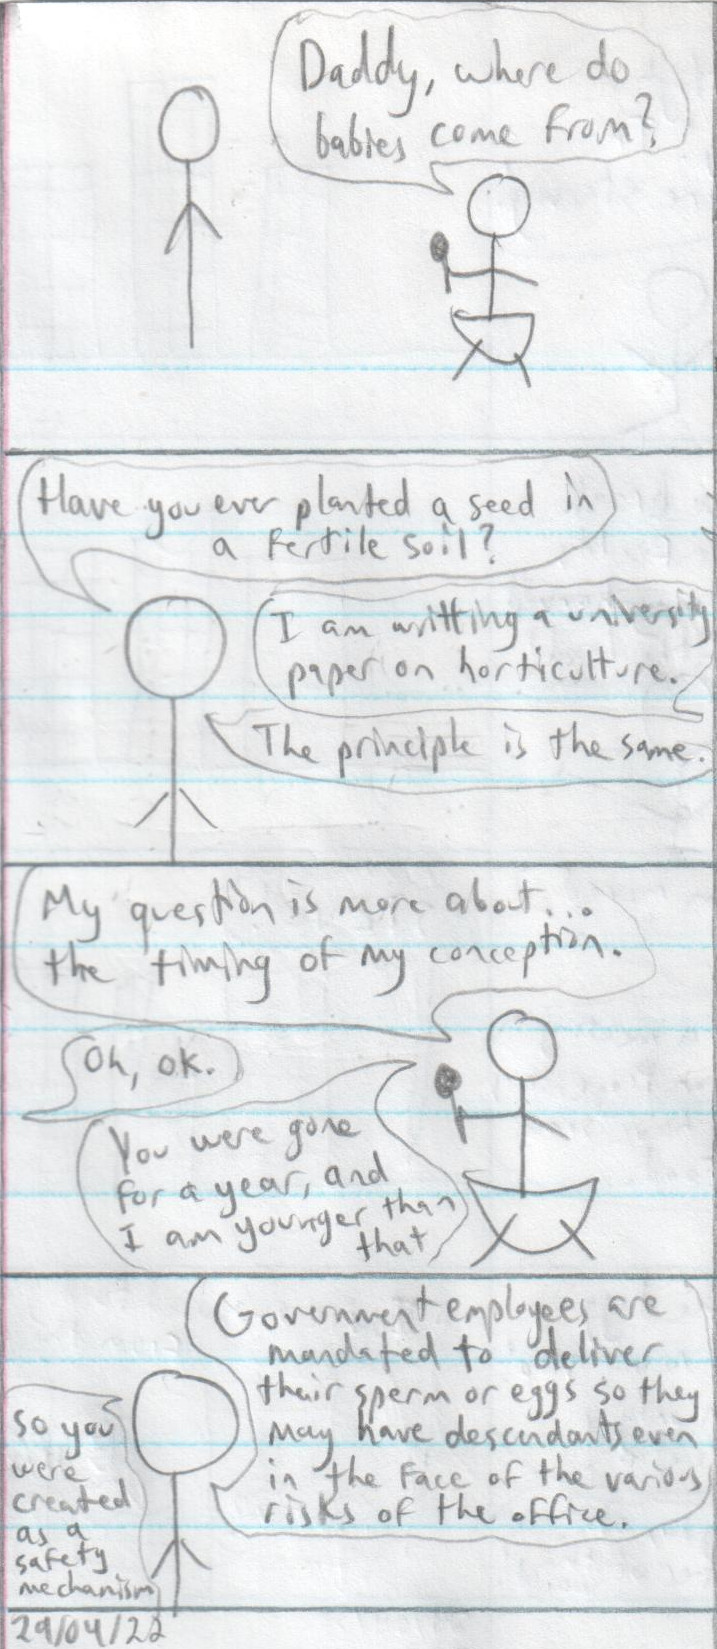 Daddy, where do
babies come from?
Have you ever planted a seed in
a fertile soil?
I am writting a university
paper on horticulture.
The principle is the same.
My question is more about...
the timing of my conception.
Oh, ok.
You were gone
for a year, and
I am younger than
that
Government employees are
mandated to deliver
their sperm or eggs so they
may have descendants even
in the face of the various
risks of the office.
so you
were
created
as a
safety
mechanism
29/04/22